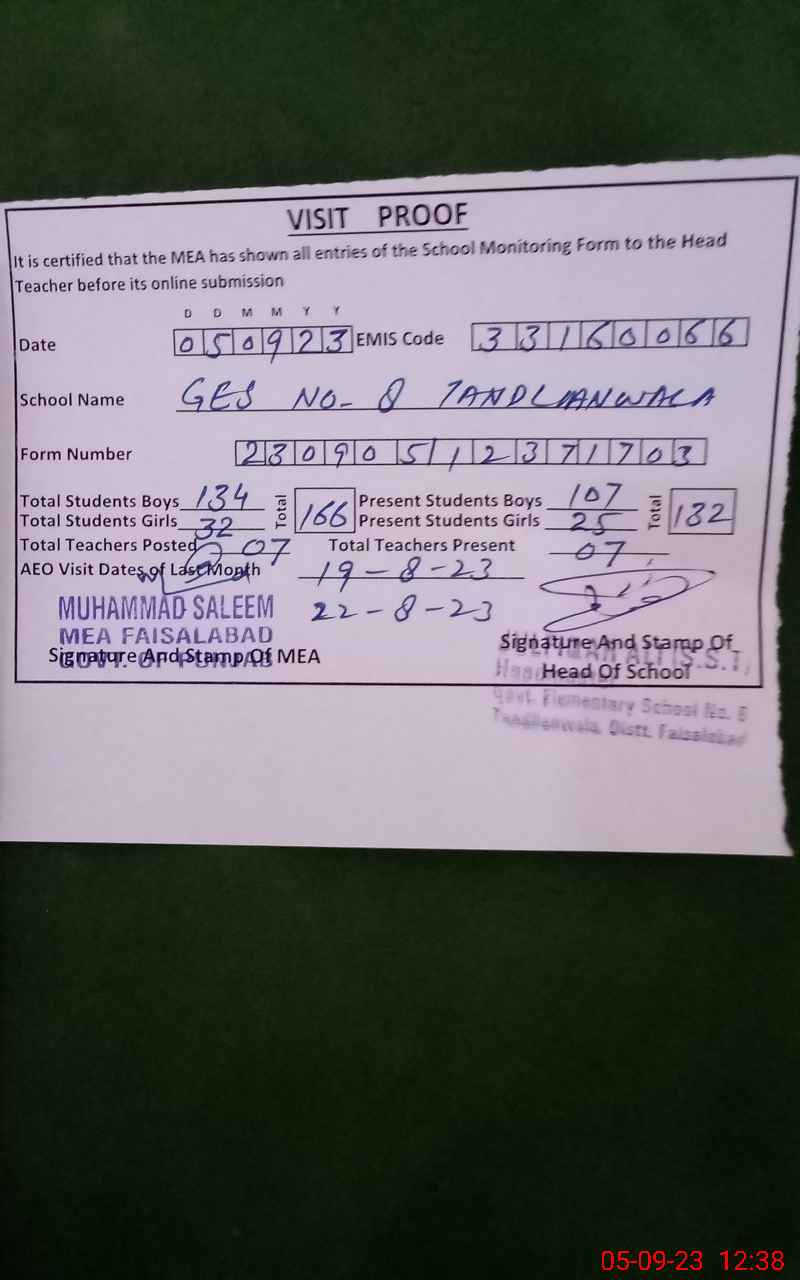 VISIT PROOF
It is certified that the MEA has shown all entries of the School Monitoring Form to the Head
Teacher before its online submission
D D M M Y Y
Date 050923 EMIS Code 33160066
School Name GES NO- 8 TANDLIANWALA
Form Number 23090512371703
Total Students Boys 134 Total 166 Present Students Boys 107 Total 132
Total Students Girls 32 Present Students Girls 25
Total Teachers Posted 07 Total Teachers Present 07
AEO Visit Dates of Last Month 19-8-23
22-8-23
MUHAMMAD SALEEM
MEA FAISALABAD
GOVT. OF PUNJAB
Signature And Stamp Of MEA
Signature And Stamp Of
Head Of School
S.S.T,
Govt. Elementary School No. 8
Tandlianwala, Distt. Faisalabad
05-09-23 12:38